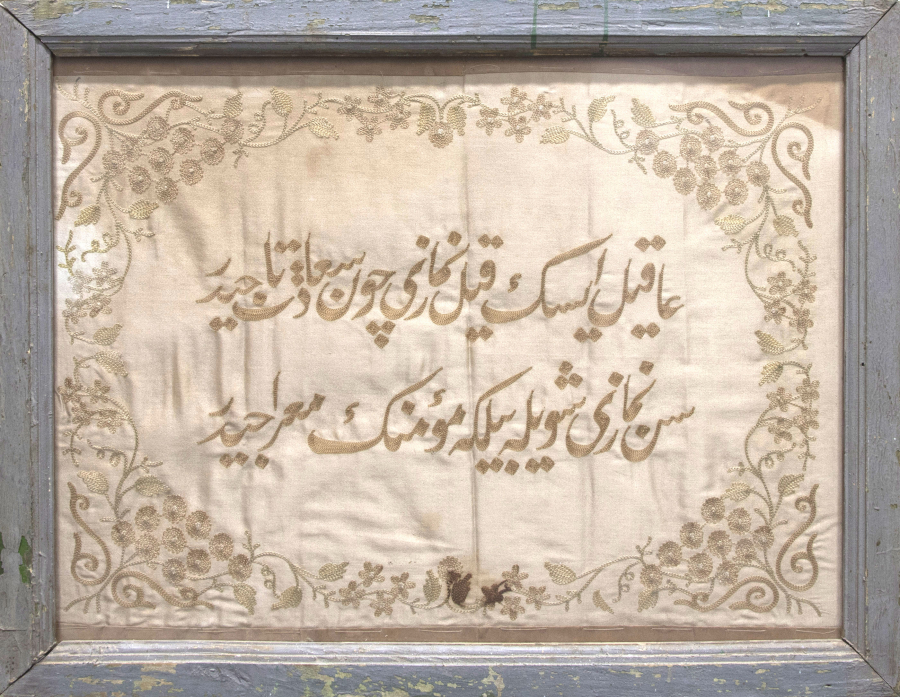 عاقیل ایسڭ قیل نمازی چون سعادت تاجیدر
سن نمازی شویله بیلکه مؤمنڭ معراجیدر